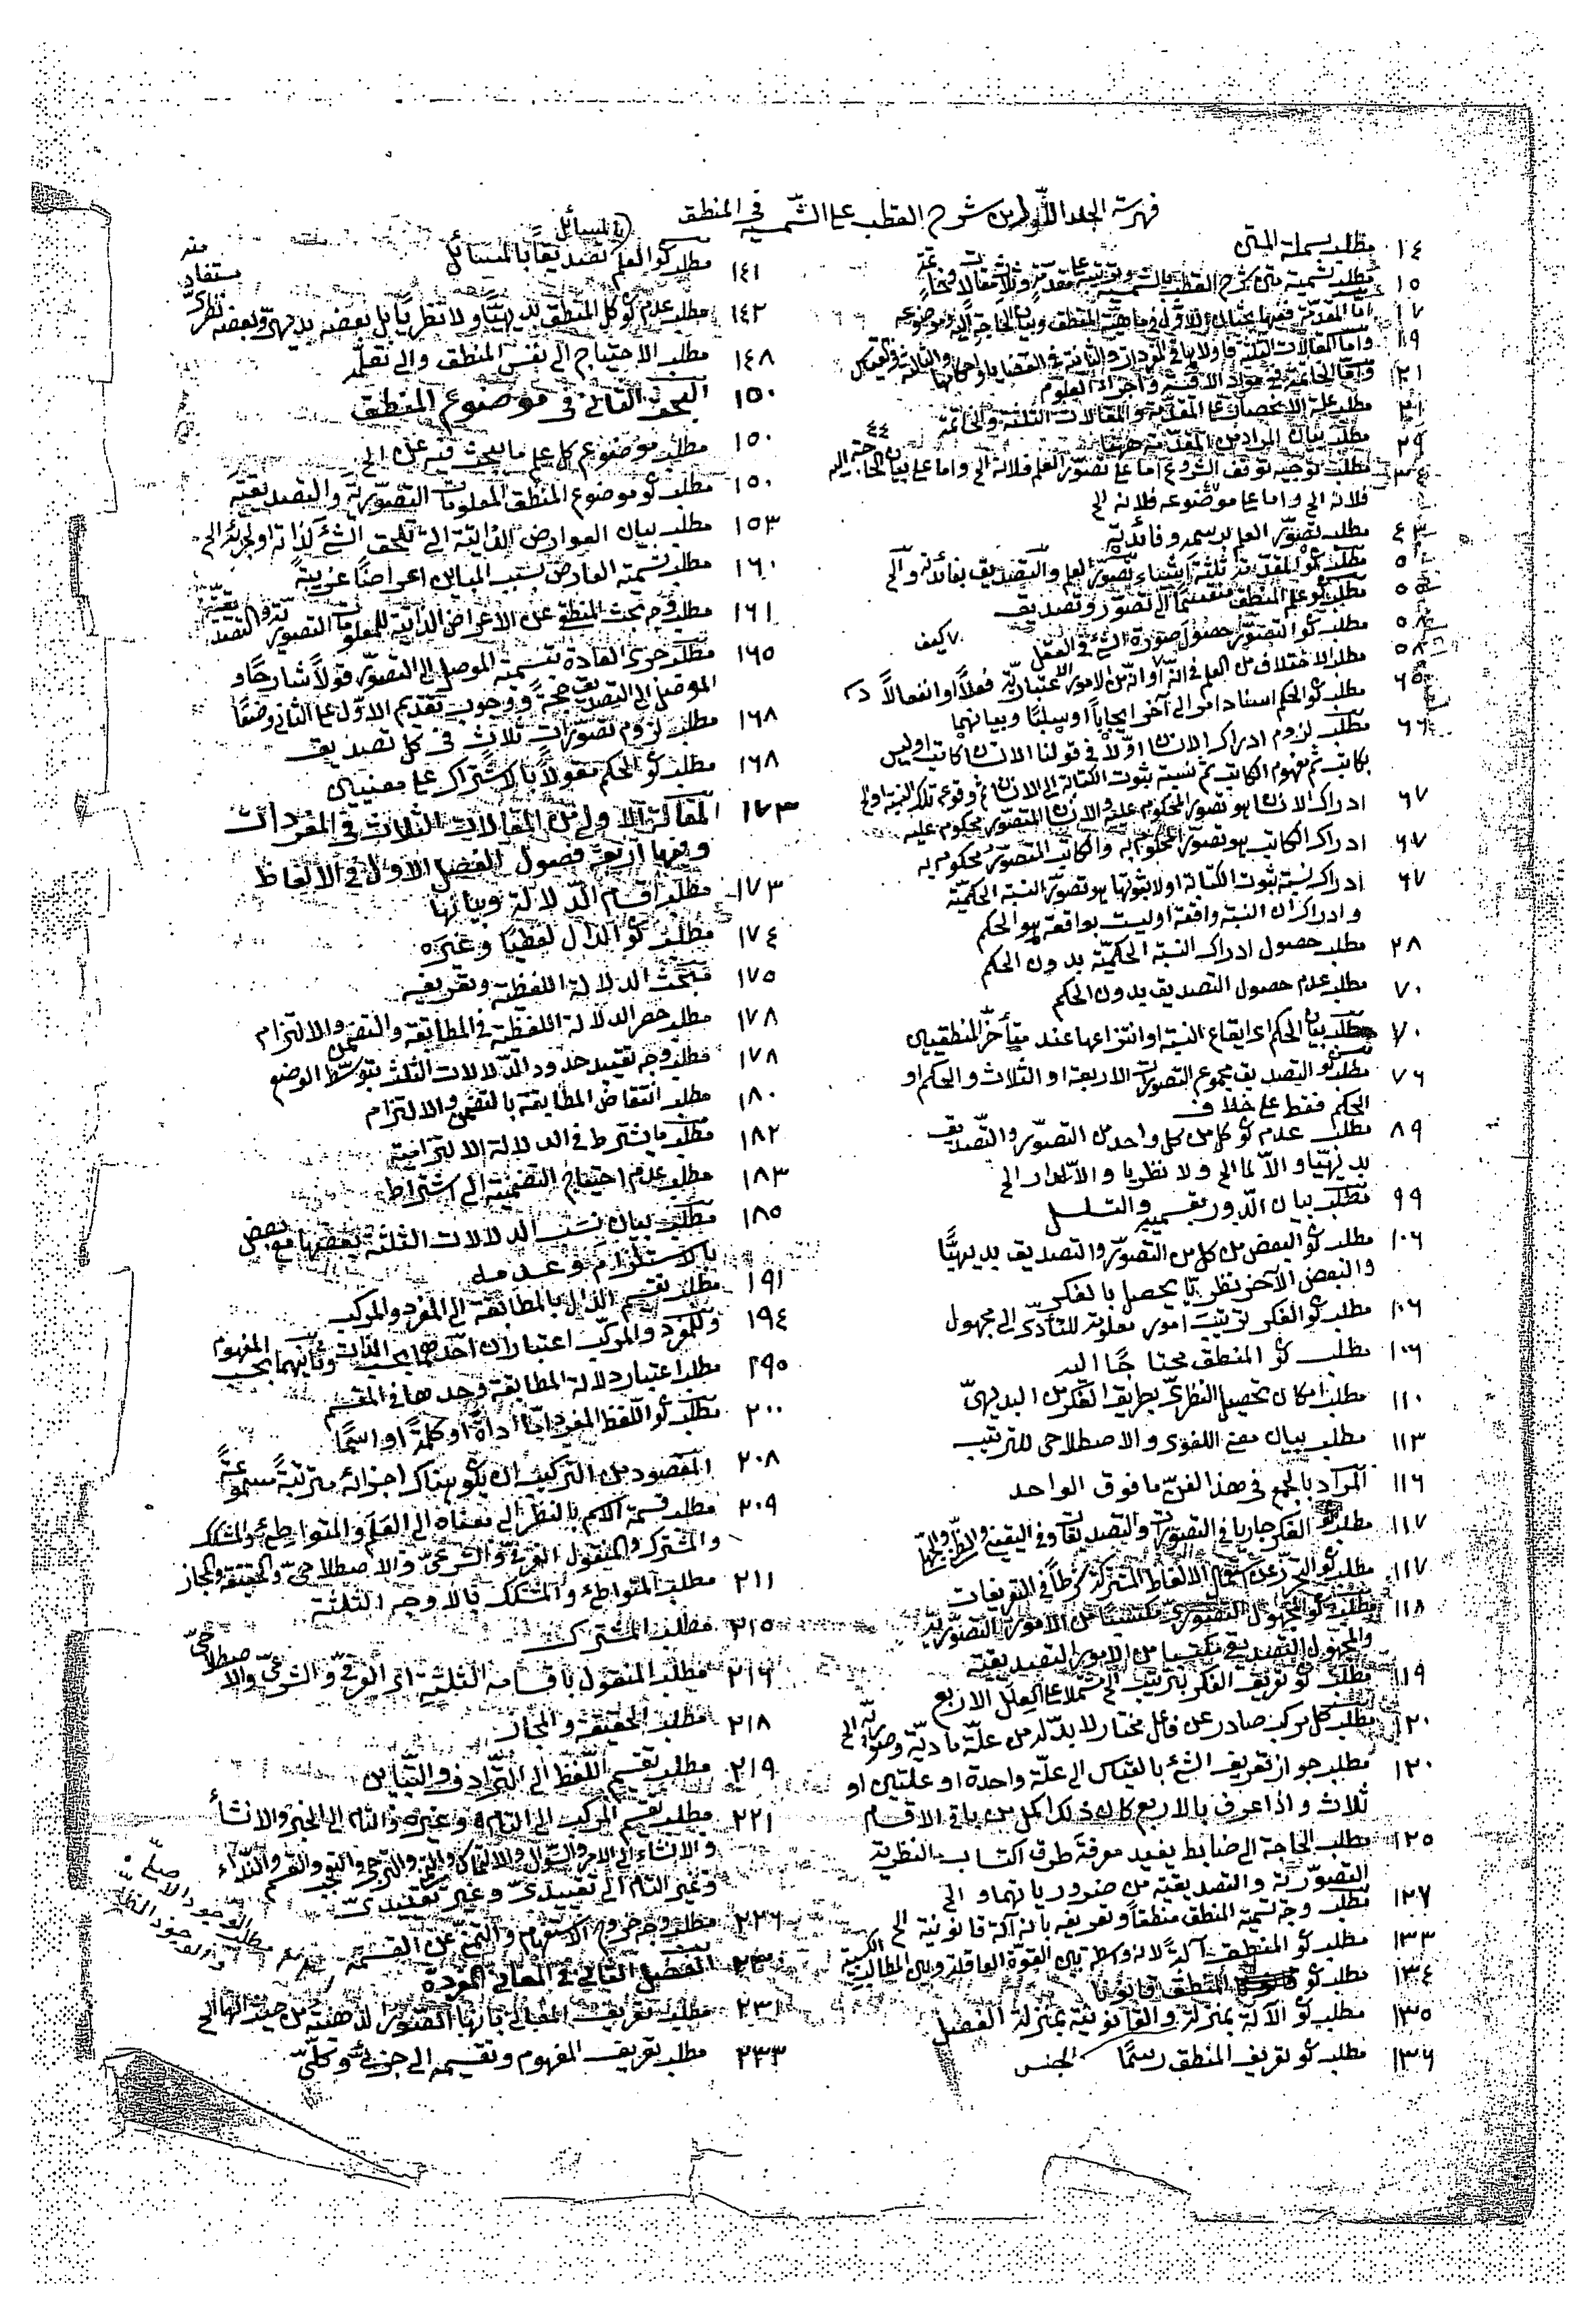 فهرسة الجلد الأول من شرح القطب على الشمسية في المنطق
١٤ مطلب بسملة المتن
١٥ مطلب تسمية متن شرح القطب بالشمسية وترتيبه على مقدمة وثلاث مقالات وخاتمة
١٧ اما المقدمة ففيها بحثان الاول في ماهية المنطق وبيان الحاجة اليه وموضوعه
١٩ واما المقالات الثلثة فاوليها في المفردات والثانية في القضايا واحكامها والثالثة في القياس
٢١ واما الخاتمة ففي مواد الاقيسة واجزاء العلوم
٢١ مطلب علة الانحصار على المقدمة والمقالات الثلثة والخاتمة
٢٩ مطلب بيان المراد من المقدمة ههنا
٣٤ مطلب توجيه توقف الشروع اما على تصور العلم فلانه الخ واما على بيان الحاجة اليه ٤٤
فلانه الخ واما على موضوعه فلانه الخ
٤٣ مطلب تصور العلم برسمه وفائدته
٥٠ مطلب كون المقدمة ثلثة اشياء تصور العلم والتصديق بفائدته والخ
٥٥ مطلب كون علم المنطق منقسما الى تصور وتصديق
٥٨ مطلب كون التصور حصول صورة الشئ في العقل
٥٨ مطلب الاختلاف من العلم في انه او انه من الامور الاعتبارية فعلاً او انفعالاً ٧ كيف
٦٥ مطلب كون الحكم اسناد امر الى آخر ايجاباً او سلباً وبيانهما
٦٦ مطلب لزوم ادراك الانسان اولاً في قولنا الانسان كاتب او ليس
بكاتب ثم مفهوم الكاتب ثم نسبة ثبوت الكتابة الى الانسان ثم وقوع تلك النسبة او لا
٦٧ ادراك الانسان هو تصور المحكوم عليه والانسان المتصور محكوم عليه
٦٧ ادراك الكاتب هو تصور المحكوم به والكاتب المتصور محكوم به
٦٧ ادراك نسبة ثبوت الكتابة اولا ثبوتها هو تصور النسبة الحكمية
وادراك ان النسبة واقعة او ليست بواقعة هو الحكم
٢٨ مطلب حصول ادراك النسبة الحكمية بدون الحكم
٧٠ مطلب عدم حصول التصديق بدون الحكم
٧٠ مطلب بيان الحكم اى ايقاع النسبة او انتزاعها عند متأخر المنطقيين
٧٦ مطلب كون التصديق مجموع التصورات الاربعة او الثلاث والحكم او
الحكم فقط على خلاف
٨٩ مطلب عدم كون كل من كل واحد من التصور والتصديق
بديهيا والا لما الخ ولا نظريا والا لدار الخ
٩٩ مطلب بيان الدور بقسميه والتسلسل
١٠٦ مطلب كون البعض من كل من التصور والتصديق بديهيًّا
والبعض الآخر نظريًّا يحصل بالفكر
١٠٦ مطلب كون الفكر ترتيب امور معلومة للتأدى الى مجهول
١٠٦ مطلب كون المنطق محتاجًا اليه
١١٠ مطلب امكان تحصيل النظرى بطريق الفكر من البديهى
١١٣ مطلب بيان معنى اللغوى والاصطلاحى للترتيب
١١٦ المراد بالجمع في هذا الفن ما فوق الواحد
١١٧ مطلب كون الفكر جاريا في التصورات والتصديقات وفي اليقينى والظنى والجهلى
١١٧ مطلب كون التحرز عن استعمال الالفاظ المشتركة شرطاً في التعريفات
١١٨ مطلب كون المجهول التصورى مكتسباً من الامور التصورية
والمجهول التصديقى مكتسبا من الامور التصديقية
١١٩ مطلب كون تعريف الفكر بترتيب الخ مشتملا على العلل الاربع
١٢٠ مطلب كل مركب صادر عن فاعل مختار لا بد له من علة مادية وصورية الخ
١٢٠ مطلب جواز تعريف الشئ بالقياس الى علة واحدة او علتين او
ثلاث واذا عرف بالاربع كان ذلك اكمل من باقى الاقسام
١٢٥ مطلب الحاجة الى ضابط يفيد معرفة طرق اكتساب النظرية
التصورية والتصديقية من ضرورياتهما والخ
١٢٧ مطلب وجه تسمية المنطق منطقاً وتعريفه بانه آلة قانونية الخ
١٣٣ مطلب كون المنطق آلة لانه واسطة بين القوة العاقلة وبين المطالب الكسبية
١٣٤ مطلب كون المنطق قانونا
١٣٥ مطلب كون الآلة بمنزلة الجنس والقانونية بمنزلة الفصل
١٣٦ مطلب كون تعريف المنطق رسمًا
١٤١ مطلب كون العلم تصديقاً بالمسائل
١٤٢ مطلب عدم كون كل المنطق بديهيًّا ولا نظريًّا بل بعضه بديهى وبعضه نظرى مستفاد منه
١٤٨ مطلب الاحتياج الى نفس المنطق والى تعلمه
١٥٠ البحث الثانى في موضوع المنطق
١٥٠ مطلب موضوع كل علم ما يبحث فيه عن الخ
١٥٠ مطلب كون موضوع المنطق المعلومات التصورية والتصديقية
١٥٣ مطلب بيان العوارض الذاتية التى تلحق الشئ لذاته او لجزئه الخ
١٦٠ مطلب تسمية العارض بسبب المباين اعراضًا غريبةً
١٦١ مطلب وجه بحث المنطق عن الاعراض الذاتية للمعلومات التصورية والتصديقية
١٦٥ مطلب جرى العادة بتسمية الموصل الى التصور قولاً شارحًا و
الموصل الى التصديق حجةً ووجوب تقديم الاول على الثانى وضعًا
١٦٨ مطلب لزوم تصورات ثلاث في كل تصديق
١٦٨ مطلب كون الحكم مقولاً بالاشتراك على معنيين
١٧٣ المقالة الاولى من المقالات الثلاث في المفردات
وفيها اربعة فصول الفصل الاول في الالفاظ
١٧٣ مطلب اقسام الدلالة وبيانها
١٧٤ مطلب كون الدال لفظيًا وغيره
١٧٥ مبحث الدلالة اللفظية وتعريفه
١٧٨ مطلب حصر الدلالة اللفظية في المطابقة والتضمن والالتزام
١٧٨ مطلب وجه تقييد حدود الدلالات الثلث بتوسّط الوضع
١٨٠ مطلب انتقاض المطابقة بالتضمن والالتزام
١٨٢ مطلب ما يشترط في الدلالة الالتزامية
١٨٣ مطلب عدم احتياج التضمنية الى اشتراط
١٨٥ مطلب بيان نسب الدلالات الثلثة بعضها مع بعض
بالاستلزام وعدمه
١٩١ مطلب تقسيم الدال بالمطابقة الى المفرد والمركب
١٩٤ وللمفرد والمركب اعتباران احدهما بحسب الذات وثانيهما بحسب المفهوم
١٩٥ مطلب اعتبار دلالة المطابقة وحدها في المقسم
٢٠٠ مطلب كون اللفظ المفرد امّا اداةً او كلمةً او اسمًا
٢٠٨ المقصود من التركيب ان يكون هناك اجزاء مترتبةً مسموعةً
٢٠٩ مطلب قسمة الاسم بالنظر الى معناه الى العلم والمتواطئ والمشكك
والمشترك والمنقول العرفى والشرعى والاصطلاحى والحقيقة والمجاز
٢١١ مطلب المتواطئ والمشكك بالاوجه الثلثة
٢١٥ مطلب المشترك
٢١٦ مطلب المنقول باقسامه الثلثة اى العرفى والشرعى والاصطلاحى
٢١٨ مطلب الحقيقة والمجاز
٢١٩ مطلب تقسيم اللفظ الى الترادف والتباين
٢٢١ مطلب تقسيم المركب الى التام وغيره والتام الى الخبر والانشاء
والانشاء الى الامر والسؤال والالتماس والتمنى والترجى والتعجب والقسم والنداء
وغير التام الى تقييدى وغير تقييدى
٢٢٦ مطلب وجه خروج الاستفهام والتمنى عن القسمة
٢٣٠ الفصل الثانى في المعانى المفردة
٢٣١ مطلب تعريف المعانى بانها الصور الذهنية من حيث انها الخ
٢٣٣ مطلب تعريف المفهوم وتقسيمه الى جزئى وكلّى
مطلب الوجود الاصلى
والوجود الظلى